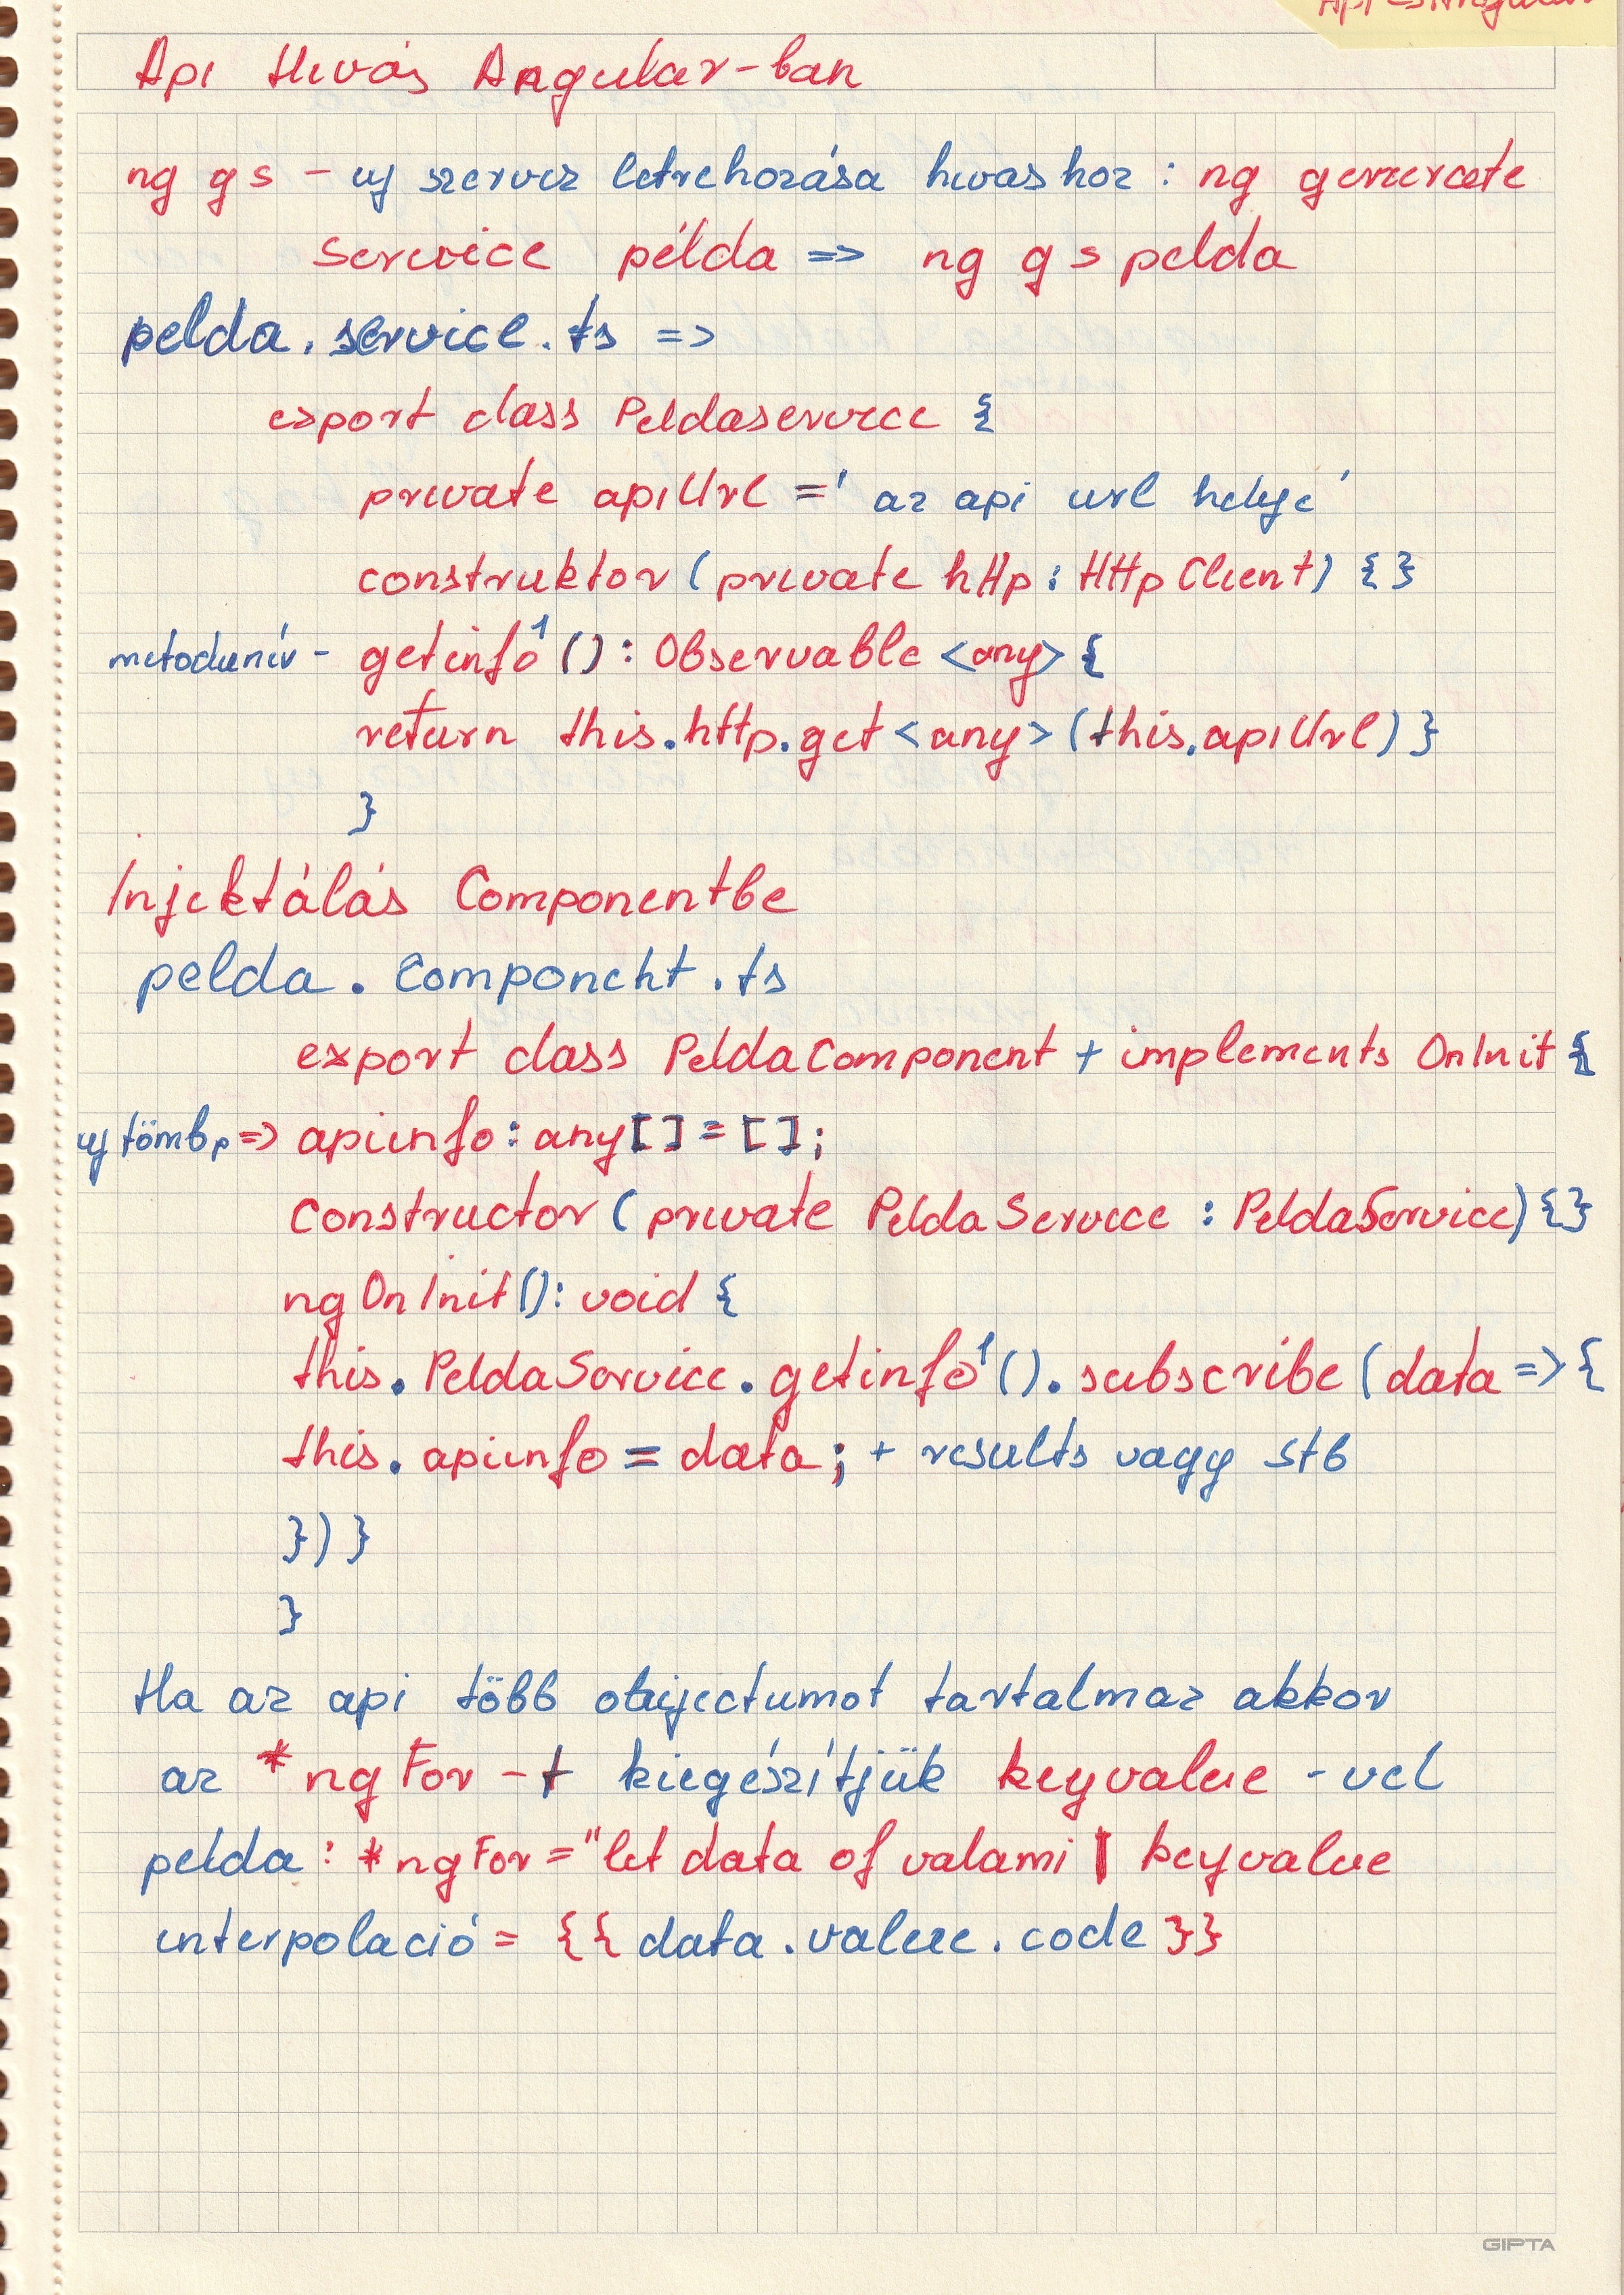 Api -> Angular
Api Hivás Angular-ban
ng g s - uj szerviz letrehozása hivashoz : ng generate
service példa => ng g s pelda
pelda.service.ts =>
export class Peldaservice {
private apiUrl = ' az api url helye '
construktor (private http : HttpClient) { }
metodunév - getinfo¹ () : Observable <any> {
return this.http.get <any> (this.apiUrl) }
}
Injektálás Componentbe
pelda . Component .ts
export class PeldaComponent + implements OnInit {
uj tömb => apiinfo : any [ ] = [ ] ;
constructor ( private PeldaService : PeldaService) { }
ngOnInit () : void {
this. PeldaService . getinfo¹ () . subscribe ( data => {
this. apiinfo = data ; + results vagy stb
} ) }
}
Ha az api több objectumot tartalmaz akkor
az * ngFor -t kiegészítjük keyvalue -vel
pelda : * ngFor = "let data of valami | keyvalue
interpolació = {{ data . value . code }}
GIPTA